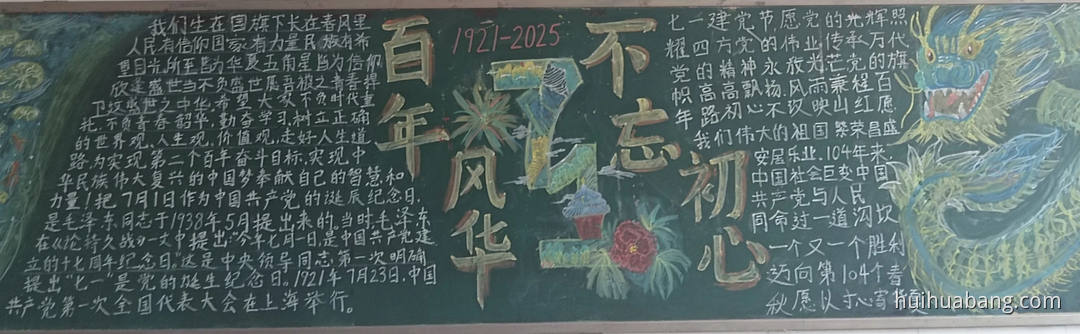 我们生在国旗下长在春风里
人民有信仰国家有力量民族有希
望目光所至皆为华夏五角星皆为信仰
欣是盛世当不负盛世愿吾祖之青春捍
卫盛世之中华希望大家不负时代重
托,不负青春韶华,勤奋学习,树立正确
的世界观、人生观、价值观,走好人生道
路为实现第二个百年奋斗目标,实现中
华民族伟大复兴的中国梦奉献自己的智慧和
力量!把7月1日作为中国共产党的诞辰纪念日,
是毛泽东同志于1938年5月提出来的,当时毛泽东
在《论持久战》一文中提出:“今年七月一日,是中国共产党建
立的十七周年纪念日,”这是中央领导同志第一次明确
提出“七一”是党的诞生纪念日。1921年7月23日,中国
共产党第一次全国代表大会在上海举行。
百年
风华
1921-2025
7.1
不忘
初心
七一建党节,愿党的光辉照
耀四方党的伟业传承万代
党的精神永放光芒党的旗
帜高高飘扬风雨兼程百
年路初心不改映山红愿
我们伟大的祖国繁荣昌盛
安居乐业.104年来,
中国社会巨变中国
共产党与人民
同命过一道沟坎
一个又一个胜利
迈向第104个春
秋愿以寸心寄华夏
huihuabang.com